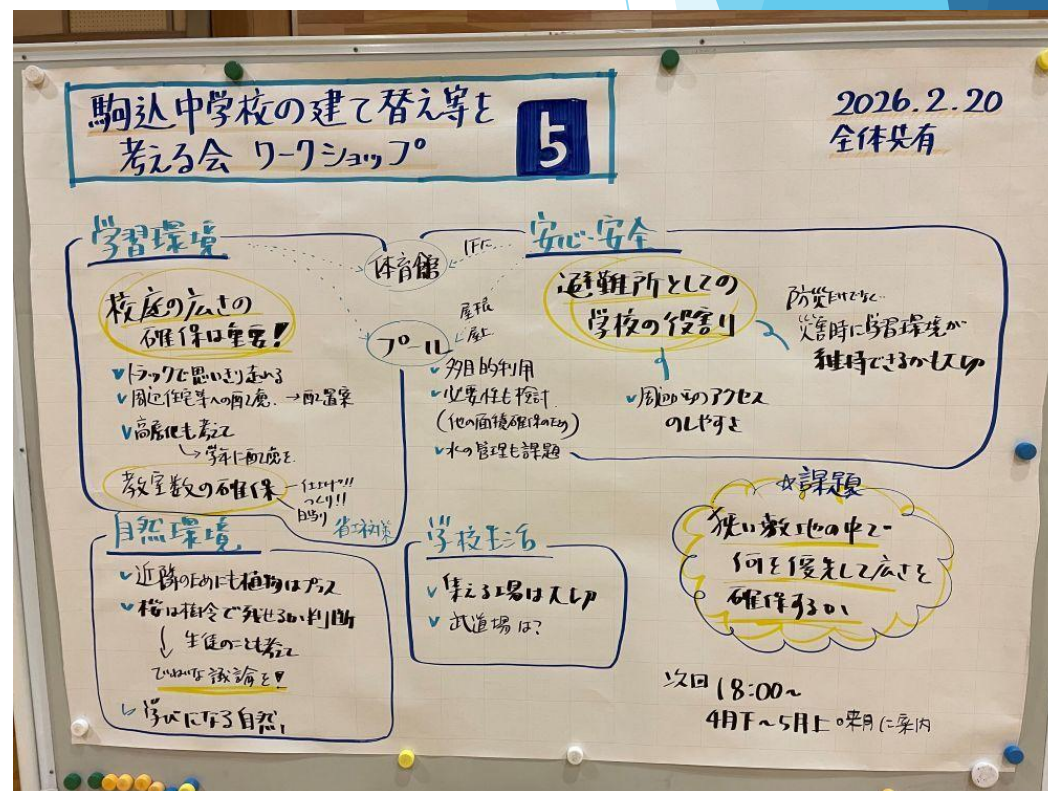 駒込中学校の建て替え等を
考える会 ワークショップ
5
2026.2.20
全体共有
学習環境
校庭の広さの
確保は重要!
トラックで思いきり走れる
周辺住宅等への配慮 → 配置案
高層化も考えて
学年に配慮を
教室数の確保
つくり!!
日当り
省エネ対策
体育館
プール
屋根
屋上
多目的利用
必要性も検討
(他の面積確保のため)
水の管理も課題
安心・安全
避難所としての
学校の役割り
防災だけでなく
災害時に学習環境が
維持できるかも大切
周辺からのアクセス
のしやすさ
自然環境
近隣のためにも植物はプラス
桜は樹令で残せるか判断
生徒のことも考えて
ていねいな議論を!
学びになる自然
学校生活
集える場は大切
武道場は?
☆課題
狭い敷地の中で
何を優先して広さを
確保するか
次回 18:00~
4月下~5月上 。来月に案内